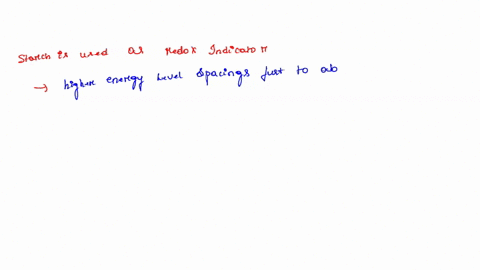 Starch is used as Redox Indicator
→ higher energy level spacings just to ab